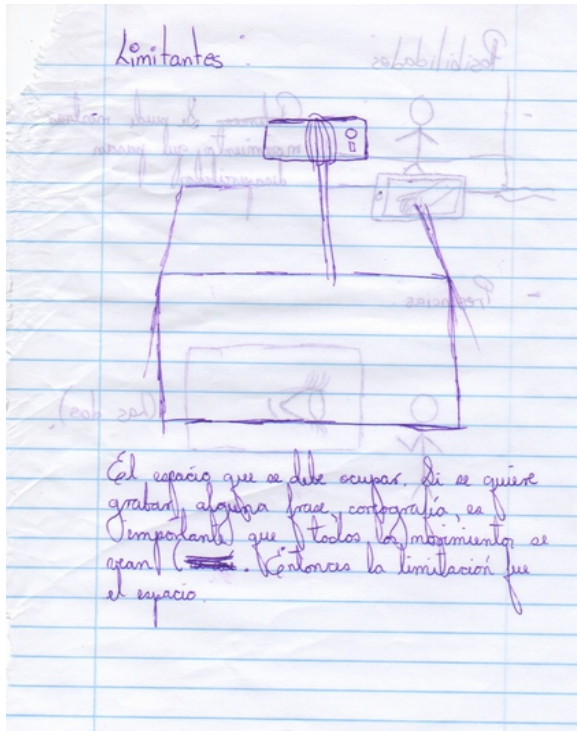 Limitantes
El espacio que se debe ocupar. Si se quiere
grabar alguna frase, coreografía, es
importante que todos los movimientos se
vean ( . Entonces la limitación fue
el espacio.